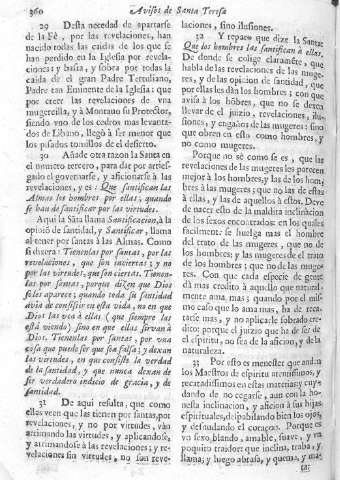 260 Avisos de Santa Teresa
29 Desta necedad de apartarse
de la Fè, por las revelaciones, han
nacido todas las caidas de los que se
han perdido en la Iglesia por revela-
ciones: y basta, y sobra por todas la
caida de el gran Padre Tertuliano,
Padre tan Eminente de la Iglesia: que
por creer las revelaciones de vna
mugercilla, y à Montano su Protector,
siendo vno de los cedros mas levanta-
dos de Libano, llegò à ser menor que
los pisados tomillos de el desierto.
30 Añade otra razon la Santa en
el numero tercero, para dàr por arries-
gado el governarse, y aficionarse à las
revelaciones, y es: Que santifican las
Almas los hombres por ellas; quando
se han de santificar por las virtudes.
Aqui la Sãta llama Santificacion, à la
opiniõ de santidad, y Santificar, llama
al tener por santas à las Almas. Como
si dixera: Tienenlas por santas, por las
revelaciones, que son inciertas; y no
por las virtudes, que son ciertas. Tienen-
las por santas, porque dizen que Dios
se les aparece; quando toda su santidad
avia de consistir en esta vida, no en que
Dios las vea à ellas (que siempre las
està viendo) sino en que ellas sirvan à
Dios. Tienenlas por santas, por vna
cosa que puede ser que sea falsa; y dexan
las virtudes, en que consiste la verdad
de la santidad, y que nunca dexan de
ser verdadero indicio de gracia, y de
santidad.
31 De aqui resulta, que como
ellas veen que las tienen por santas, por
revelaciones, y no por virtudes, vàn
arrimando las virtudes, y aplicandose,
y arrimandose à las revelaciones; y re-
velaciones sin virtudes, no son reve-
laciones, sino ilusiones.
32 Y reparo que dize la Santa:
Que los hombres las santifican à ellas.
De donde se colige claramẽte, que
habla de las revelaciones de las muge-
res, y de las opinion de santidad, que
por ellas les dàn los hombres; con que
avisa à los hõbres, que no se dexen
llevar de el juizio, revelaciones, ilu-
siones, y engaños de las mugeres: sino
que obren en esto como hombres, y
no como mugeres.
Porque no sè como se es, que las
revelaciones de las mugeres les parecen
mejor à los hombres, y las de los hom-
bres à las mugeres; que no las de estas
à ellas, y las de aquellos à estos. Deve
de nacer esto de la maldita inclinacion
de los sexos encontrados: en los quales
facilmente se huelga mas el hombre
del trato de las mugeres, que no de
los hombres; y las mugeres de el trato
de los hombres; que no de las muge-
res. Con que cada especie de gente
dà mas credito à aquello que natural-
mente ama mas; y quando por el mis-
mo caso que lo ama mas, ha de reca-
tarse mas, y no aplicarle sobrado cre-
dito: porque el juizio que ha de ser de
el espiritu, no sea de la aficion, y de la
naturaleza.
33 Por esto es menester que anden
los Maestros de espiritu atentissimos, y
recatadissimos en estas materias; y cuy-
dando de no cegarse, aun con la ho-
nesta inclinacion, y aficion à sus hijas
espirituales, despabilando bien los ojos,
y desnudando el coraçon. Porque es
vn sexo, blando, amable, suave, y vn
poquito traidor; que inclina, traba, y
llama; y luego abrasa, y quema, y mas